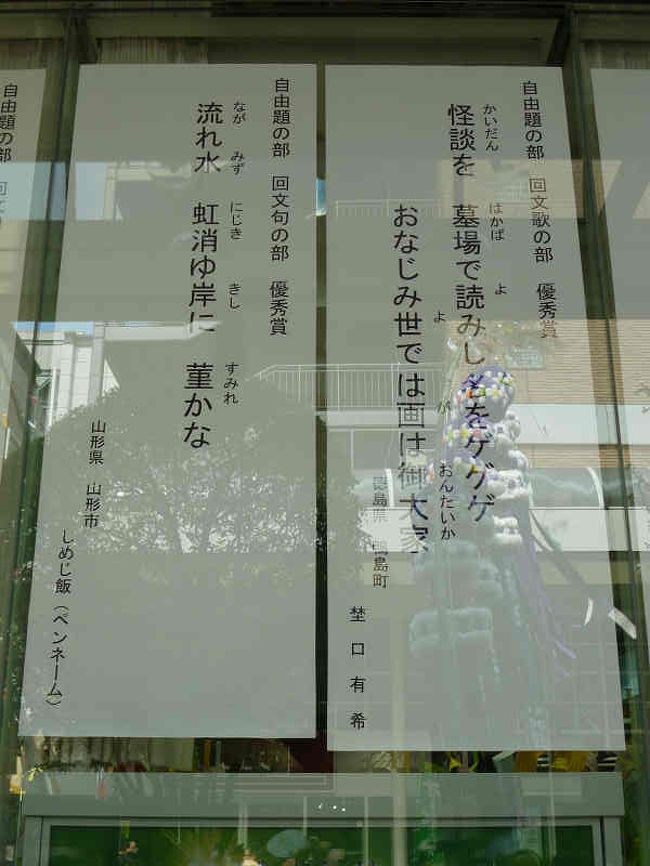 自由題の部 回文歌の部 優秀賞
かいだん はかば よ
怪談を 墓場で読みし 名をゲゲゲ
よ が おんたいか
おなじみ世では画は御大家
埜口有希
自由題の部 回文句の部 優秀賞
なが みず にじき きし すみれ
流れ水 虹消ゆ岸に 菫かな
山形県 山形市
しめじ飯（ペンネーム）
自由題の部 回文